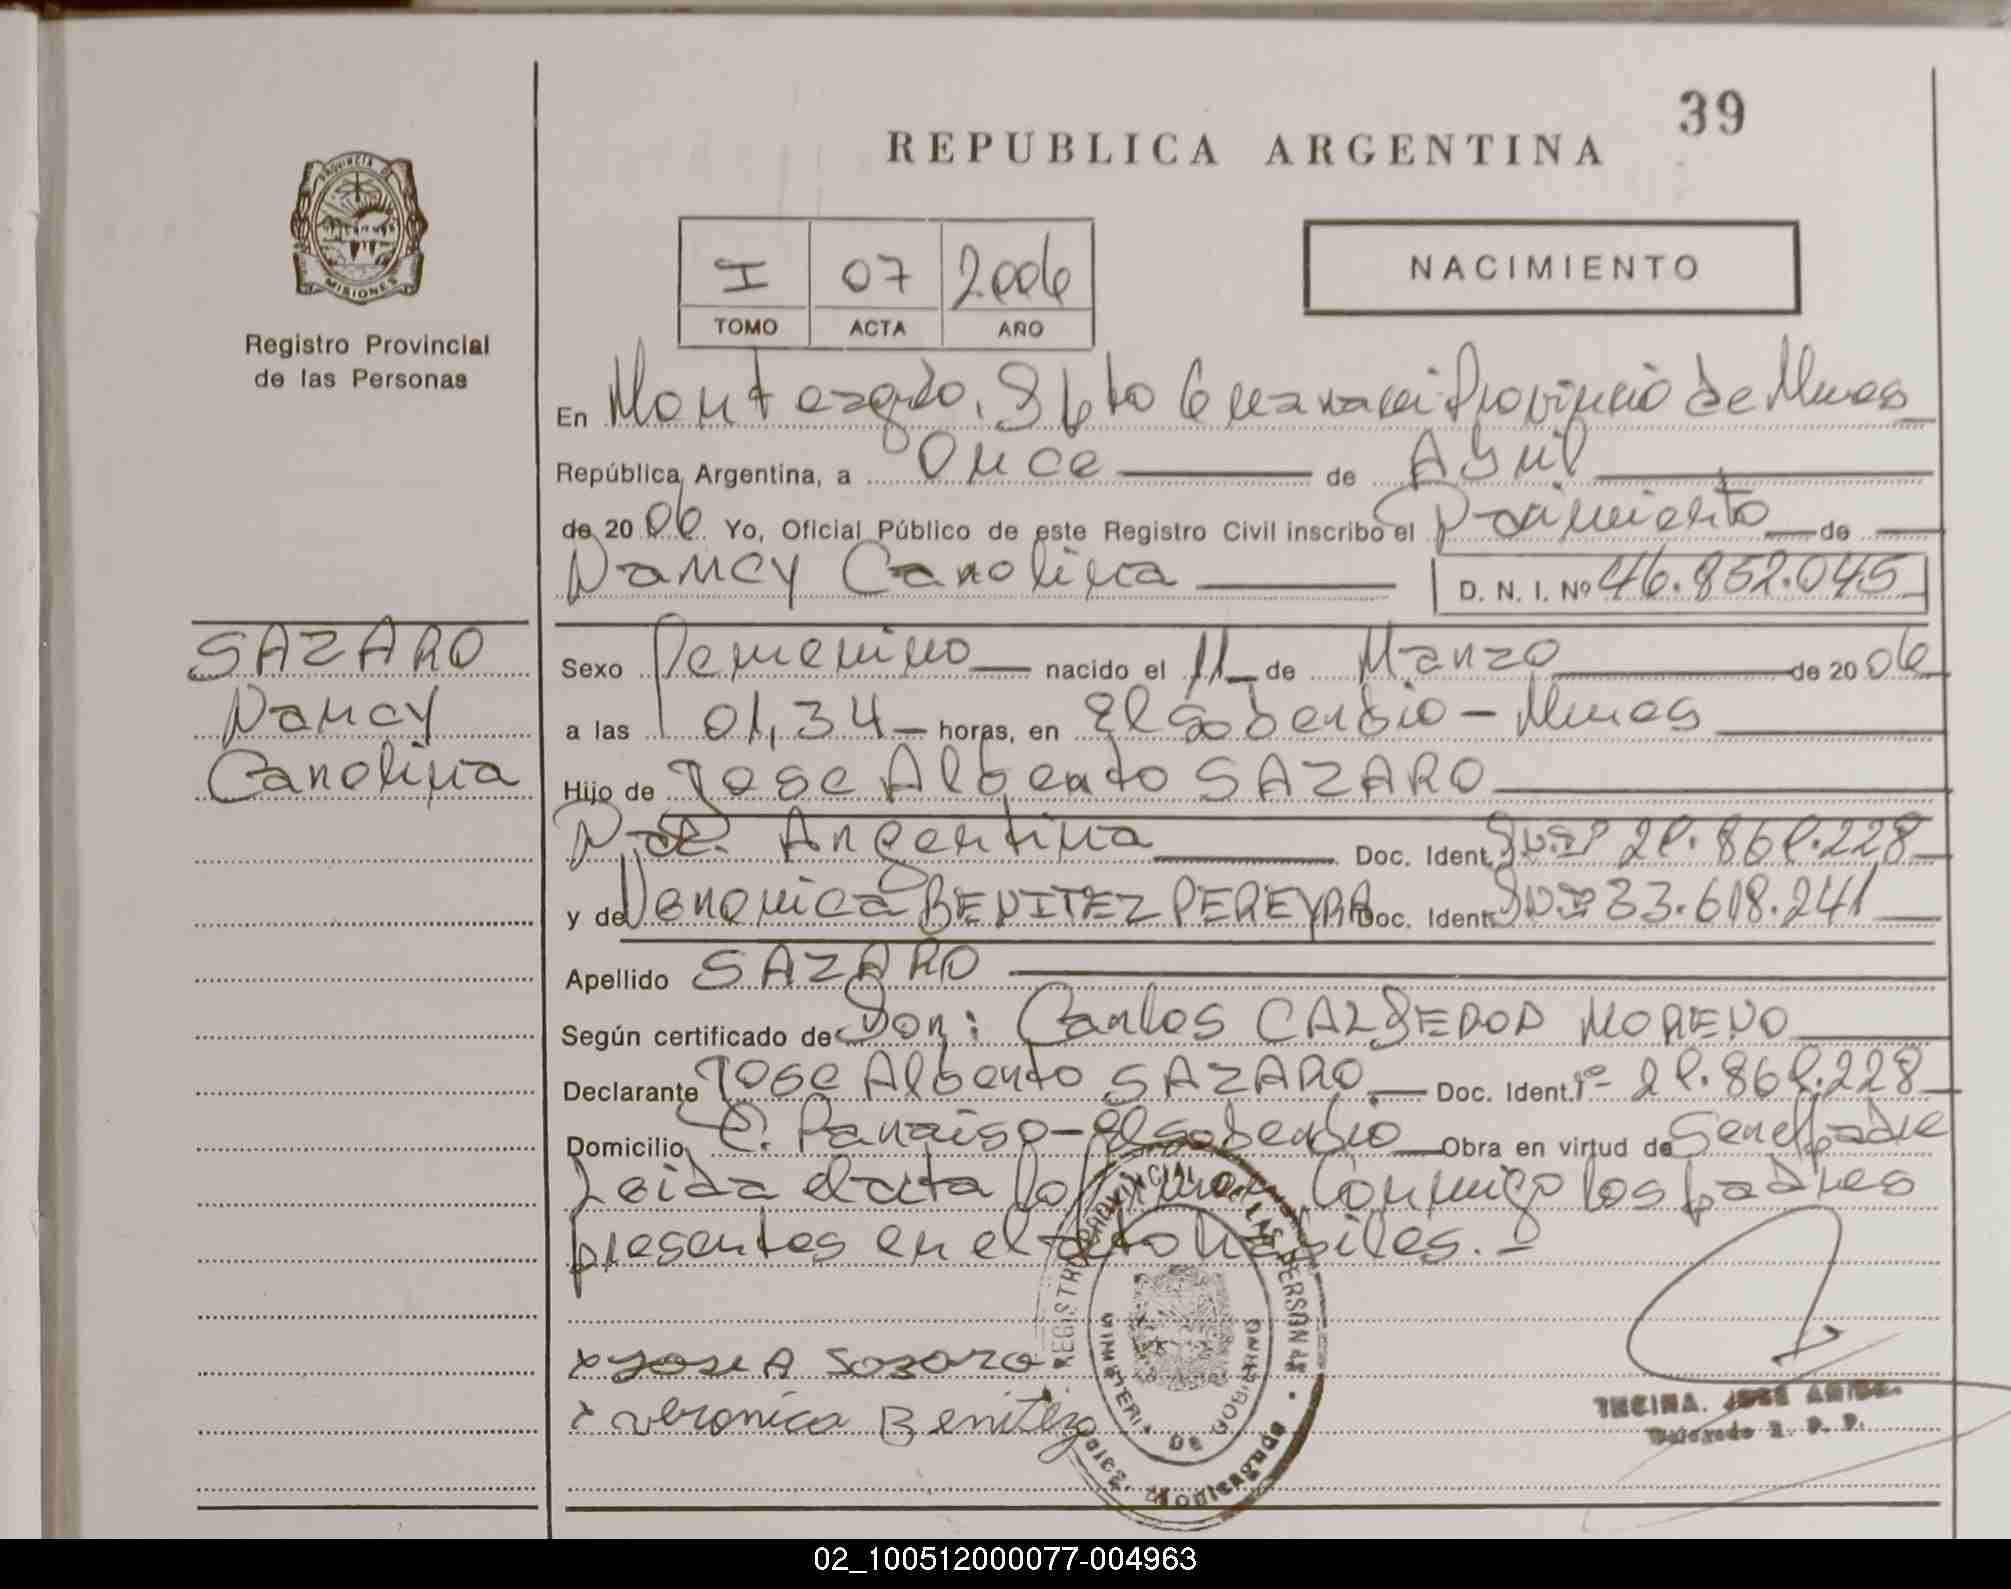 39
REPUBLICA ARGENTINA
PROVINCIA DE
MISIONES
Registro Provincial
de las Personas
I 07 2006
TOMO ACTA AÑO
NACIMIENTO
En Monteagudo, Dpto Guarani Provincia de Mnes
República Argentina, a Once de Abril
de 2006 Yo, Oficial Público de este Registro Civil inscribo el Nacimiento de
Nancy Carolina D. N. I. Nº 46.852.045
SAZARO
Nancy
Carolina
Sexo Femenino nacido el 11 de Marzo de 2006
a las 01,34 horas, en El Soberbio - Mnes
Hijo de Jose Alberto SAZARO
Nac. Argentina Doc. Ident. DNI 29.869.228
y de Veronica BENITEZ PEREYRA Doc. Ident. DNI 33.618.241
Apellido SAZARO
Según certificado de Don: Carlos CALDERON MORENO
Declarante Jose Alberto SAZARO Doc. Ident. Nº 29.869.228
Domicilio C. Paraiso - El Soberbio Obra en virtud de Ser el padre
Leida el acta la firman Conmigo los padres
presentes en el acto habiles. -
x Jose A Sozoro
x veronica Benitez
REGISTRO PROVINCIAL DE LAS PERSONAS
MINISTERIO DE GOBIERNO
Monteagudo
ENCINA, JOSE
Delegado R. P. P.
02_100512000077-004963